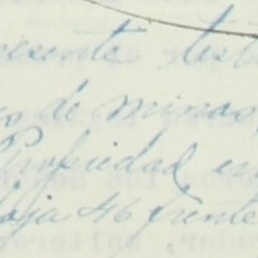 presente test
de minas,
Propiedad en
foja 46 frente